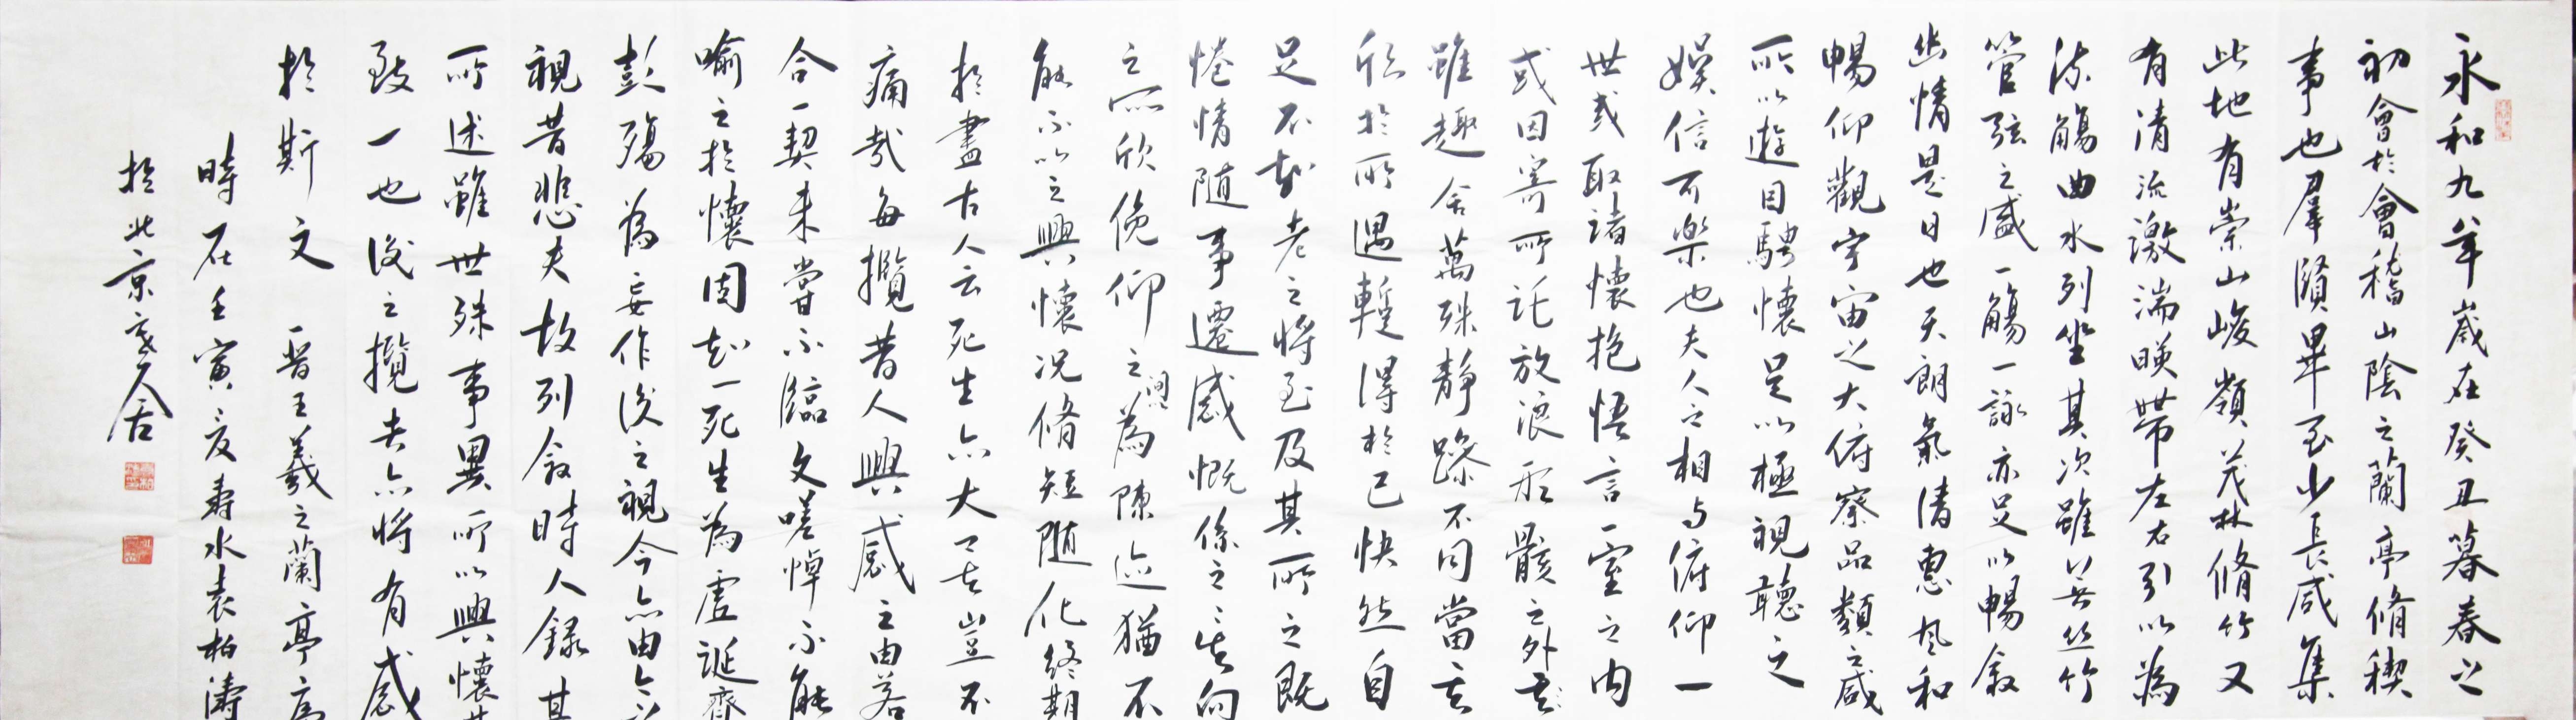 永和九年歲在癸丑暮春之
初會於會稽山陰之蘭亭脩稧
事也羣賢畢至少長咸集
此地有崇山峻嶺茂林脩竹又
有清流激湍暎帶左右引以為
流觴曲水列坐其次雖無絲竹
管弦之盛一觴一詠亦足以暢敘
幽情是日也天朗氣清惠風和
暢仰觀宇宙之大俯察品類之盛
所以遊目騁懷足以極視聽之
娛信可樂也夫人之相與俯仰一
世或取諸懷抱悟言一室之內
或因寄所託放浪形骸之外雖
雖趣舍萬殊靜躁不同當其
欣於所遇蹔得於己快然自
足不知老之將至及其所之既
惓情隨事遷感慨係之矣向
之所欣俛仰之間為陳迹猶不
能不以之興懷況脩短隨化終期
於盡古人云死生亦大矣豈不
痛哉每攬昔人興感之由若
合一契未嘗不臨文嗟悼不能
喻之於懷固知一死生為虛誕齊
彭殤為妄作後之視今亦由今之
視昔悲夫故列敘時人錄其
所述雖世殊事異所以興懷其
致一也後之攬者亦將有感
於斯文 晉王羲之蘭亭序
時在壬寅夏壽水袁柏濤
於北京寄人舍